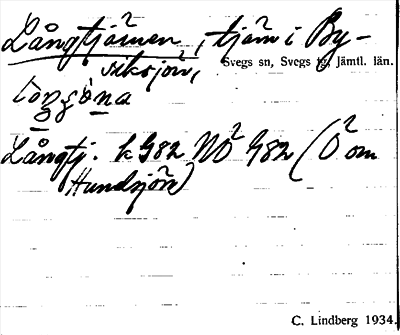 Långtjärnen, tjärn i By-
Svegs sn, Svegs tg, Jämtl. län.
Långtj. k G82 NÖ G82 (Ö om
Hundsjön)
C. Lindberg 1934.